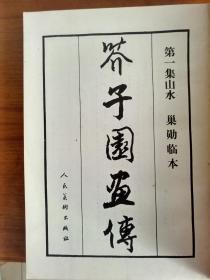 第一集山水 巢勋临本
芥子園畫傳
人民美术出版社